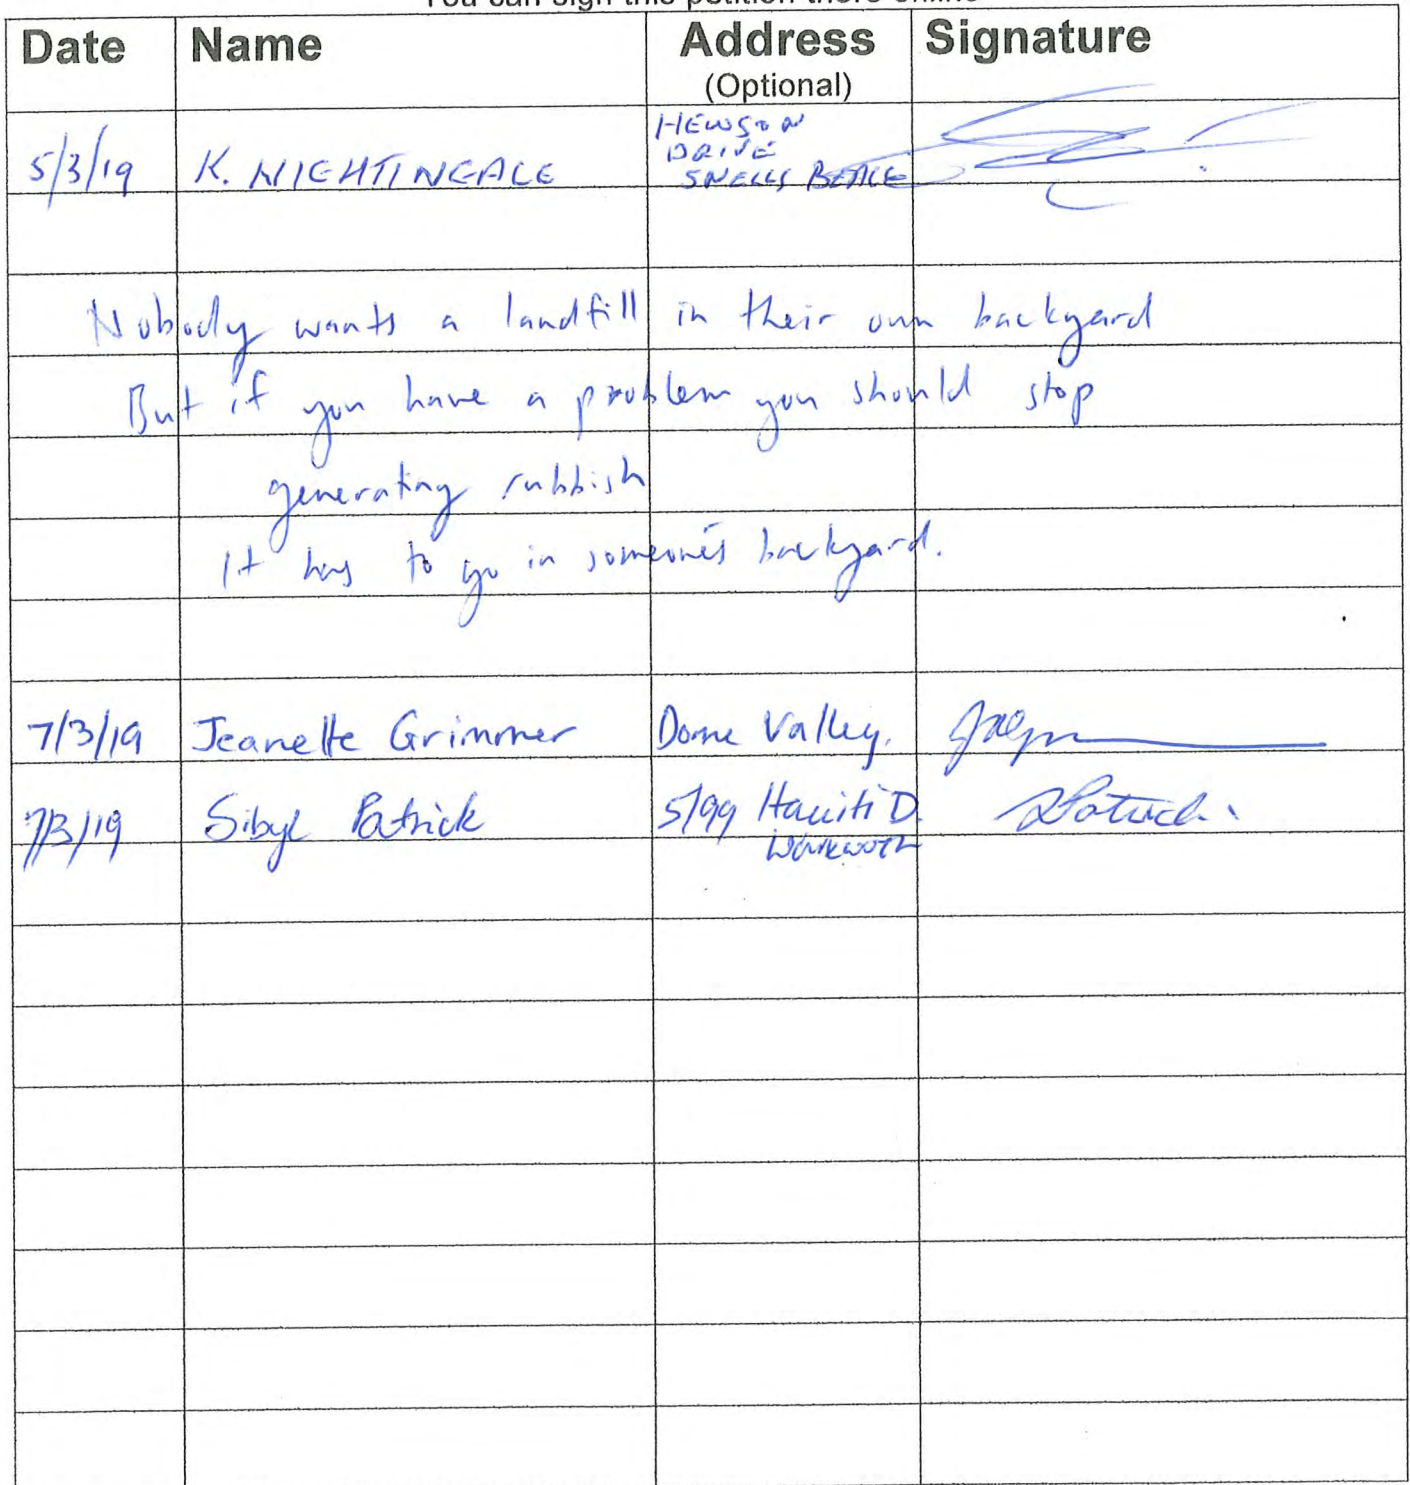 You can sign this petition there online
Date Name Address Signature
(Optional)
5/3/19 K. NIGHTINGALE HEWSON
DRIVE
SNELLS BEACH
Nobody wants a landfill in their own backyard
But if you have a problem you should stop
generating rubbish
It has to go in someone's backyard.
7/3/19 Jeanette Grimmer Dome Valley.
7/3/19 Sibyl Patrick 5/99 Hauiti D.
Warkworth